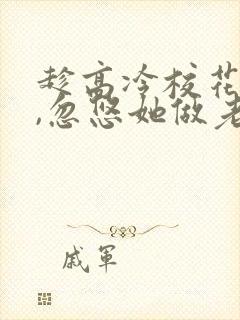 趁高冷校花
,忽悠她做老
戚军